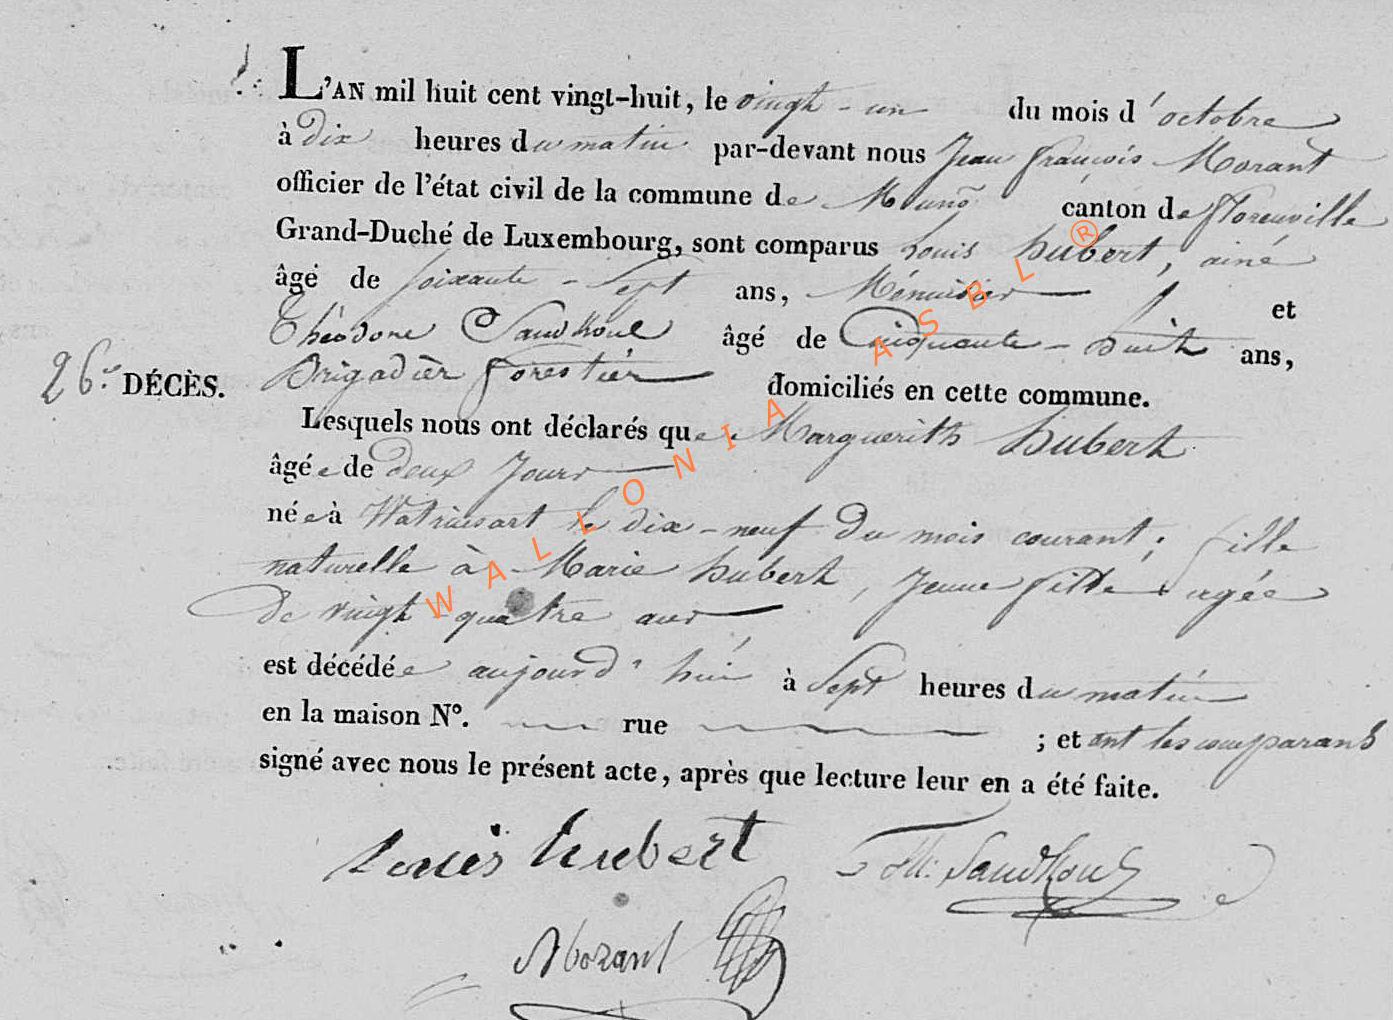 L'AN mil huit cent vingt-huit, le vingt-un du mois d'octobre
à dix heures du matin par-devant nous Jean françois Morant
officier de l'état civil de la commune de Muno canton de florenville
Grand-Duché de Luxembourg, sont comparus Louis hubert, ainé
âgé de soixante-sept ans, Ménuisier et
Théodore Sandkoul âgé de Cinquante-huit ans,
26e DÉCÈS. Brigadièr forestièr domiciliés en cette commune.
Lesquels nous ont déclarés que Marguerith hubert
âgée de deux Jours
née à Watrinsart le dix-neuf du mois courant; fille
naturelle à Marie hubert, Jeune fille agée
de vingt-quatre ans
est décédée aujourd'hui à Sept heures du matin
en la maison N°. rue ; et ont les comparans
signé avec nous le présent acte, après que lecture leur en a été faite.
Louis hubert Th: Sandkoul
Morant
WALLONIA ASBL ®